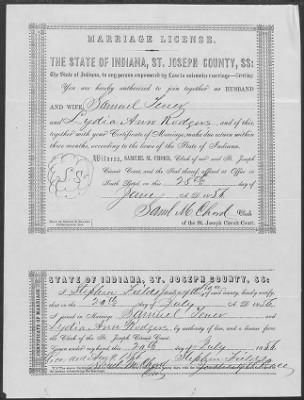 MARRIAGE LICENSE.
THE STATE OF INDIANA, ST. JOSEPH COUNTY, SS:
The State of Indiana, to any person empowered by Law to solemnize marriage—Greeting:
You are hereby authorized to join together as HUSBAND
AND WIFE, Samuel
and Lydia Ann Rodgers and of this,
together with your Certificate of Marriage, make due return within
three months, according to the laws of the State of Indiana.
Witness, SAMUEL M. CHORD, Clerk of said St. Joseph
Circuit Court, and the Seal thereof, affixed at Office in
South Bend, this 28th day of
June A. D. 1856
Saml M. Chord Clerk
of the St. Joseph Circuit Court.
CERTIFICATE OF MARRIAGE
STATE OF INDIANA, ST. JOSEPH COUNTY, SS:
I Stephen of said county, hereby certify
that on the 29th day of July A. D. 1856,
I joined in Marriage Samuel and
Lydia Ann Rodgers by authority of law, and a license from
the Clerk of the St. Joseph Circuit Court.
Given under my hand, this 29th day of July 1856
Stephen